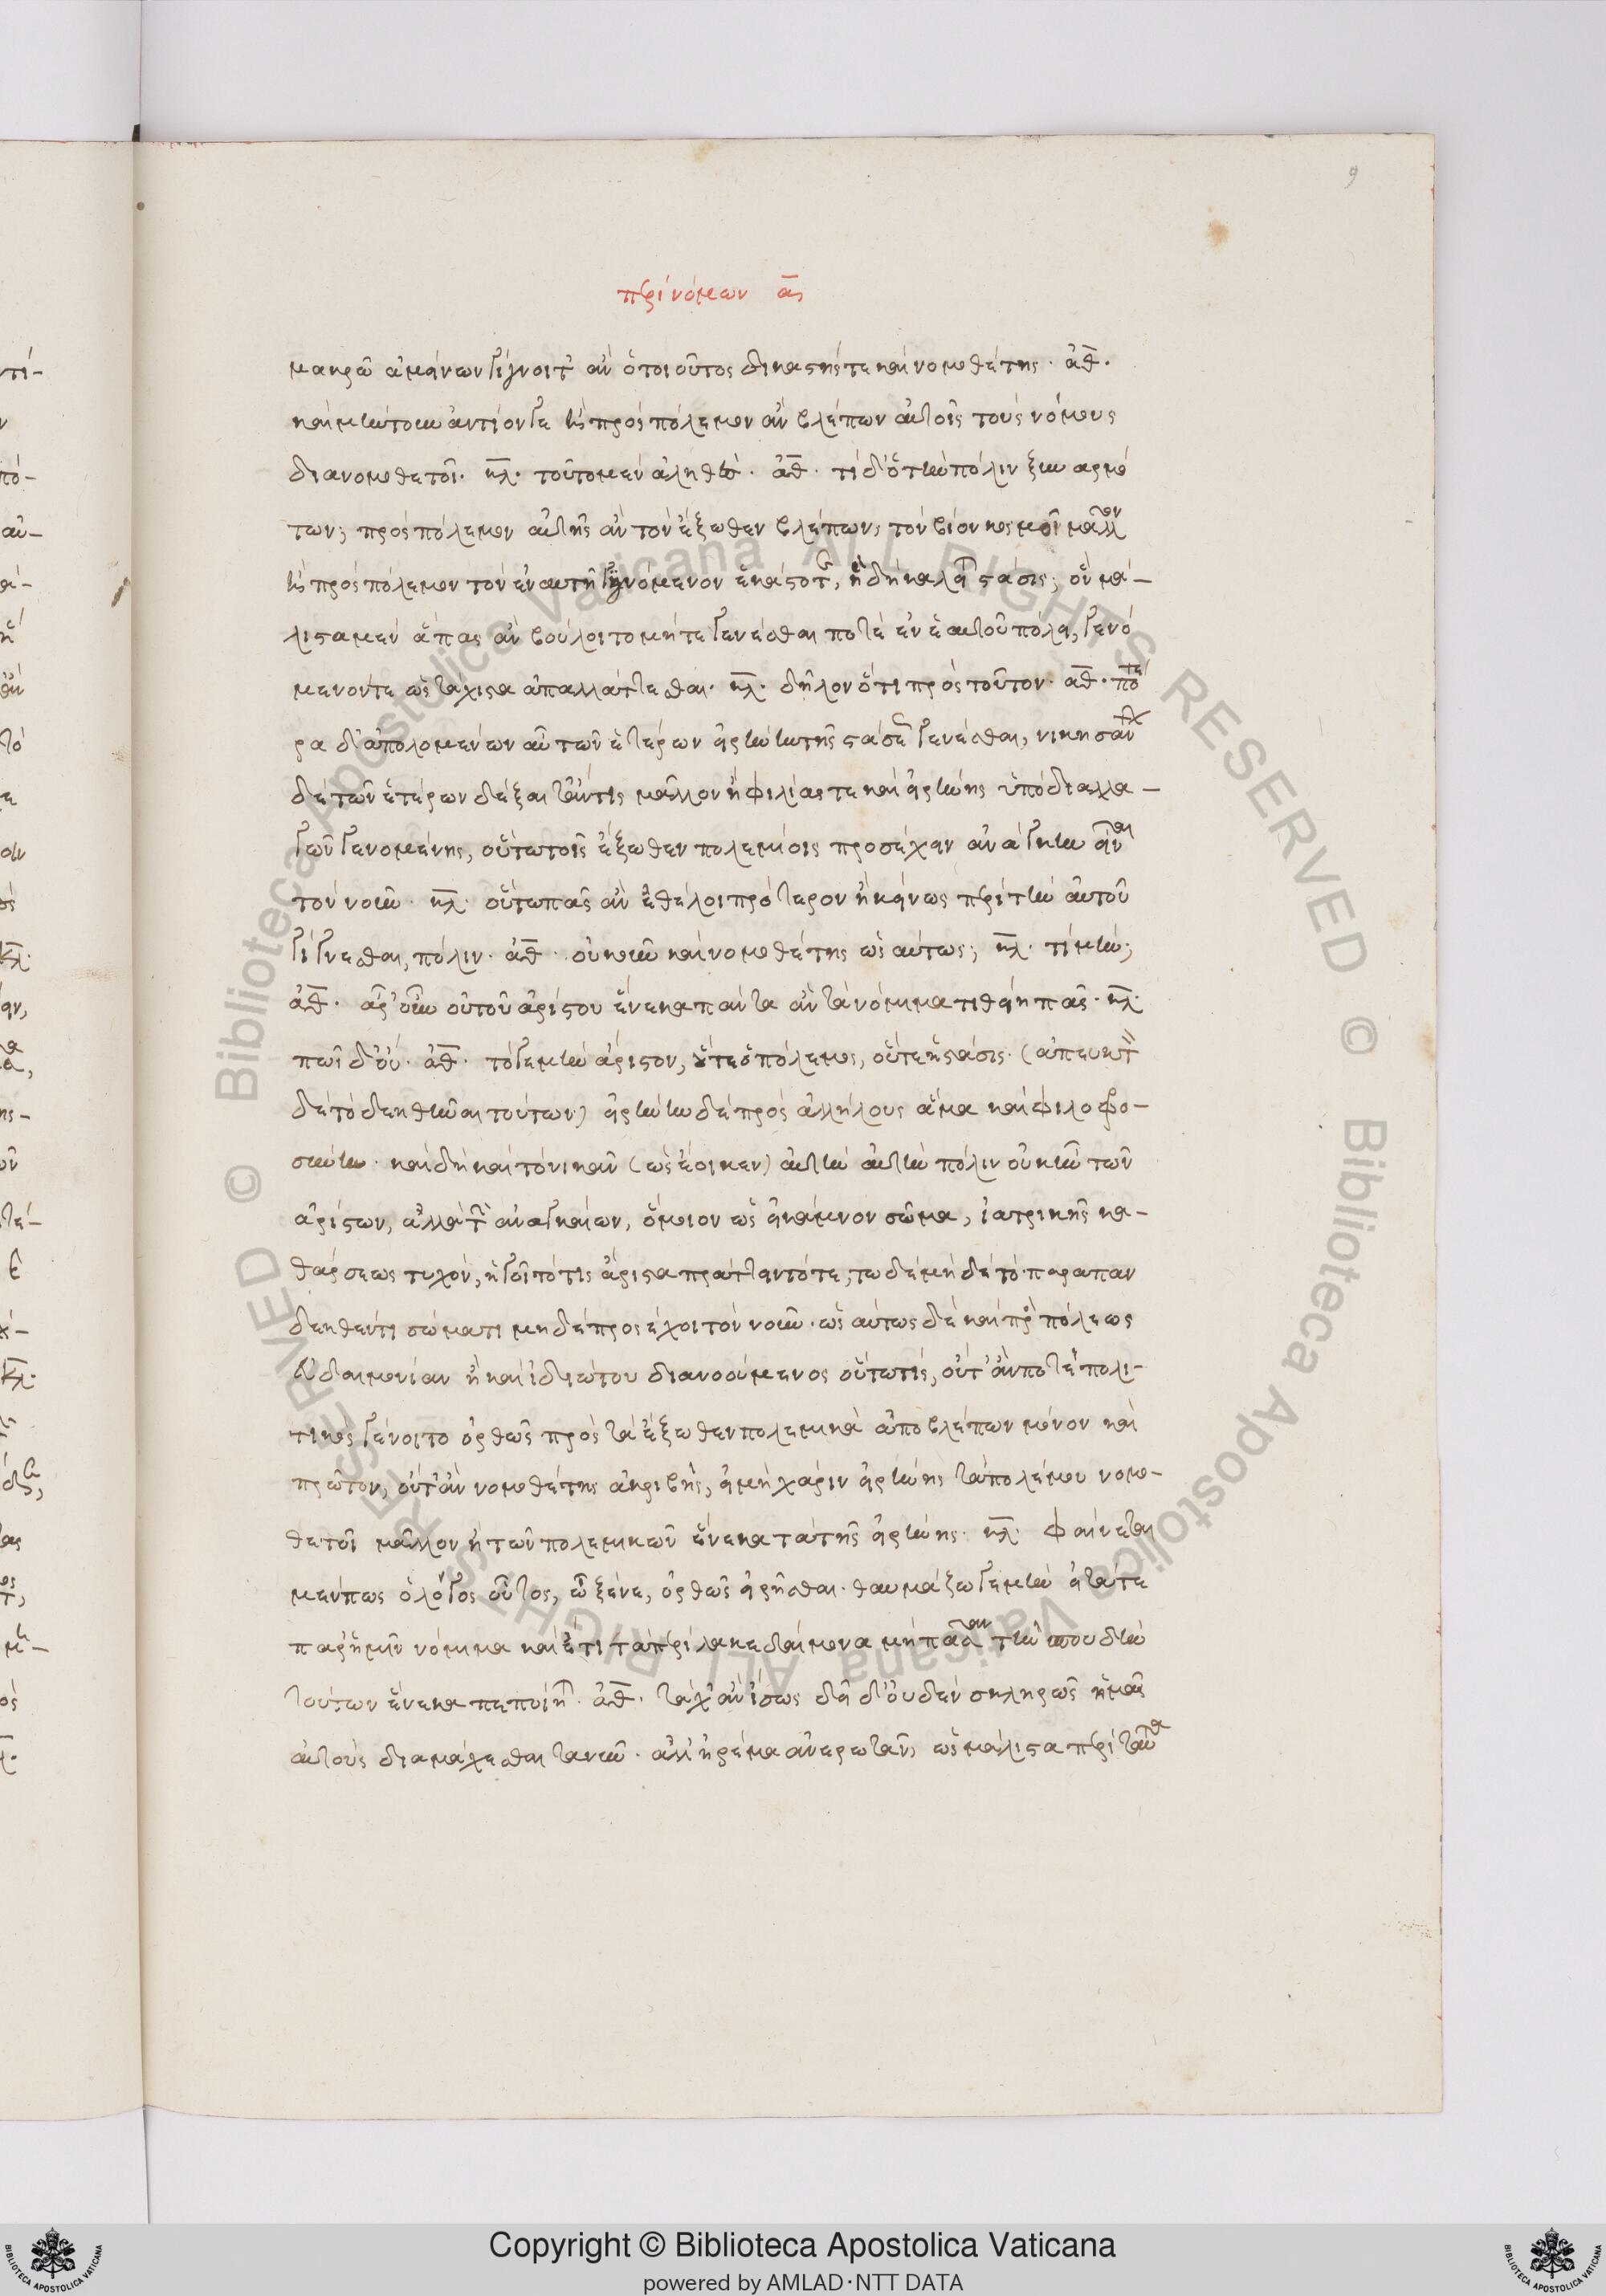 9
περὶ νόμων α
μακρῶ ἀμείνων γίγνοιτ' ἂν ὁ τοιοῦτος δικαστής τε καὶ νομοθέτης· ἀθ.
καὶ μὴν τουναντίον γε ἢ πρὸς πόλεμον ἂν βλέπων αὐτοῖς τοὺς νόμους
διανομοθετοῖ. κλ. τοῦτο μὲν ἀληθές. ἀθ. τί δ' ὁ τὴν πόλιν ξυναρμό
των; πρὸς πόλεμον αὐτῆς ἂν τὸν ἔξωθεν βλέπων, τὸν βίον κοσμοῖ μᾶλλον
ἢ πρὸς πόλεμον τὸν ἐν αυτῇ γιγνόμενον ἑκάστοτε, ἣ δὴ καλεῖται στάσις; ὃν μά-
λιστα μὲν ἅπας ἂν βούλοιτο μήτε γενέσθαι ποτὲ ἐν ἑαυτοῦ πόλει, γενό
μενόν τε ὡς τάχιστα ἀπαλλάττεσθαι. κλ. δῆλον ὅτι πρὸς τοῦτον. ἀθ. πότε
ρα δ' ἀπολομένων αὖ τῶν ἑτέρων εἰρήνην τῆς στάσεως γενέσθαι, νικησάντων
δὲ τῶν ἑτέρων δέξαιτ' ἄν τις μᾶλλον ἢ φιλίας τε καὶ εἰρήνης ὑπὸ διαλλα-
γῶν γενομένης, οὕτω τοῖς ἔξωθεν πολεμίοις προσέχειν ἀνάγκην εἶναι
τὸν νοῦν. κλ. οὕτω πᾶς ἂν ἐθέλοι πρότερον ἢ 'κείνως περὶ τὴν αὑτοῦ
γίγνεσθαι, πόλιν. ἀθ. οὐκοῦν καὶ νομοθέτης ὡσαύτως; κλ. τί μήν;
ἀθ. ἆρ' οὖν οὐ τοῦ ἀρίστου ἕνεκα πάντα ἂν τὰ νόμιμα τιθείη πᾶς. κλ.
πῶς δ' οὔ. ἀθ. τό γε μὴν ἄριστον, οὔτε ὁ πόλεμος, οὔτε ἡ στάσις. (ἀπευκτὸν
δὲ τὸ δεηθῆναι τούτων) εἰρήνην δὲ πρὸς ἀλλήλους ἅμα καὶ φιλοφρο-
σύνην. καὶ δὴ καὶ τὸ νικᾶν (ὡς ἔοικεν) αὐτὴν αὑτὴν πόλιν οὐκ ἦν τῶν
ἀρίστων, ἀλλὰ τῶν ἀναγκαίων, ὅμοιον ὡς εἰ κάμνον σῶμα, ἰατρικῆς κα-
θάρσεως τυχόν, ἡγοῖτό τις ἄριστα πράττειν τότε, τω δὲ μὴ δὲ τὸ παραπαν
δεηθέντι σώματι μηδὲ προσέχοι τὸν νοῦν. ὡσαύτως δὲ καὶ πρὸς πόλεως
εὐδαιμονίαν ἢ καὶ ἰδιώτου διανοούμενος οὕτω τίς, οὔτ' ἄν ποτε πολι-
τικὸς γένοιτο ὀρθῶς πρὸς τὰ ἔξωθεν πολεμικὰ ἀποβλέπων μόνον καὶ
πρῶτον, οὔτ' ἂν νομοθέτης ἀκριβής, εἰ μὴ χάριν εἰρήνης τὰ πολέμου νομο-
θετοῖ μᾶλλον ἢ τῶν πολεμικῶν ἕνεκα τὰ τῆς εἰρήνης. κλ. φαίνεται
μέν πως ὁ λόγος οὗτος, ὦ ξένε, ὀρθῶς εἰρῆσθαι. θαυμάζω γε μὴν εἰ τά τε
παρ' ἡμῖν νόμιμα καὶ ἔτι τὰ περὶ λακεδαίμονα μὴ πᾶσαν τὴν σπουδὴν
τούτων ἕνεκα πεποίηται. ἀθ. τάχ' ἂν ἴσως δεῖ δ' οὐδὲν σκληρῶς ἡμᾶς
αὐτοὺς διαμάχεσθαι τανῦν. ἀλλ' ἠρέμα ἀνερωτᾶν, ὡς μάλιστα περὶ ταῦτα
Copyright © Biblioteca Apostolica Vaticana
powered by AMLAD·NTT DATA